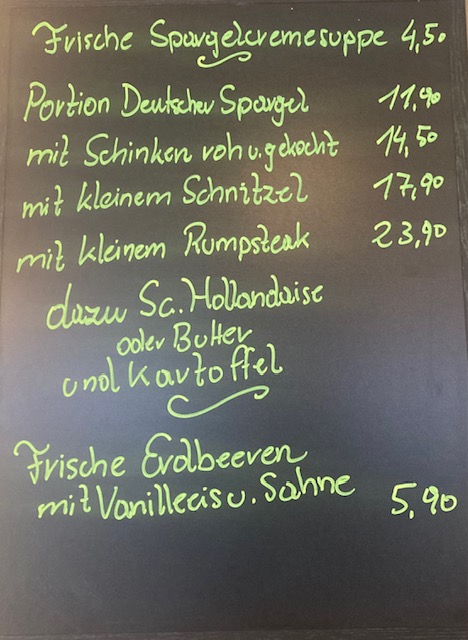 Frische Spargelcremesuppe 4,50
Portion Deutscher Spargel 11,90
mit Schinken roh u. gekocht 14,50
mit kleinem Schnitzel 17,90
mit kleinem Rumpsteak 23,90
dazu Sc. Hollandaise
oder Butter
und Kartoffel
Frische Erdbeeren
mit Vanilleeis u. Sahne 5,90